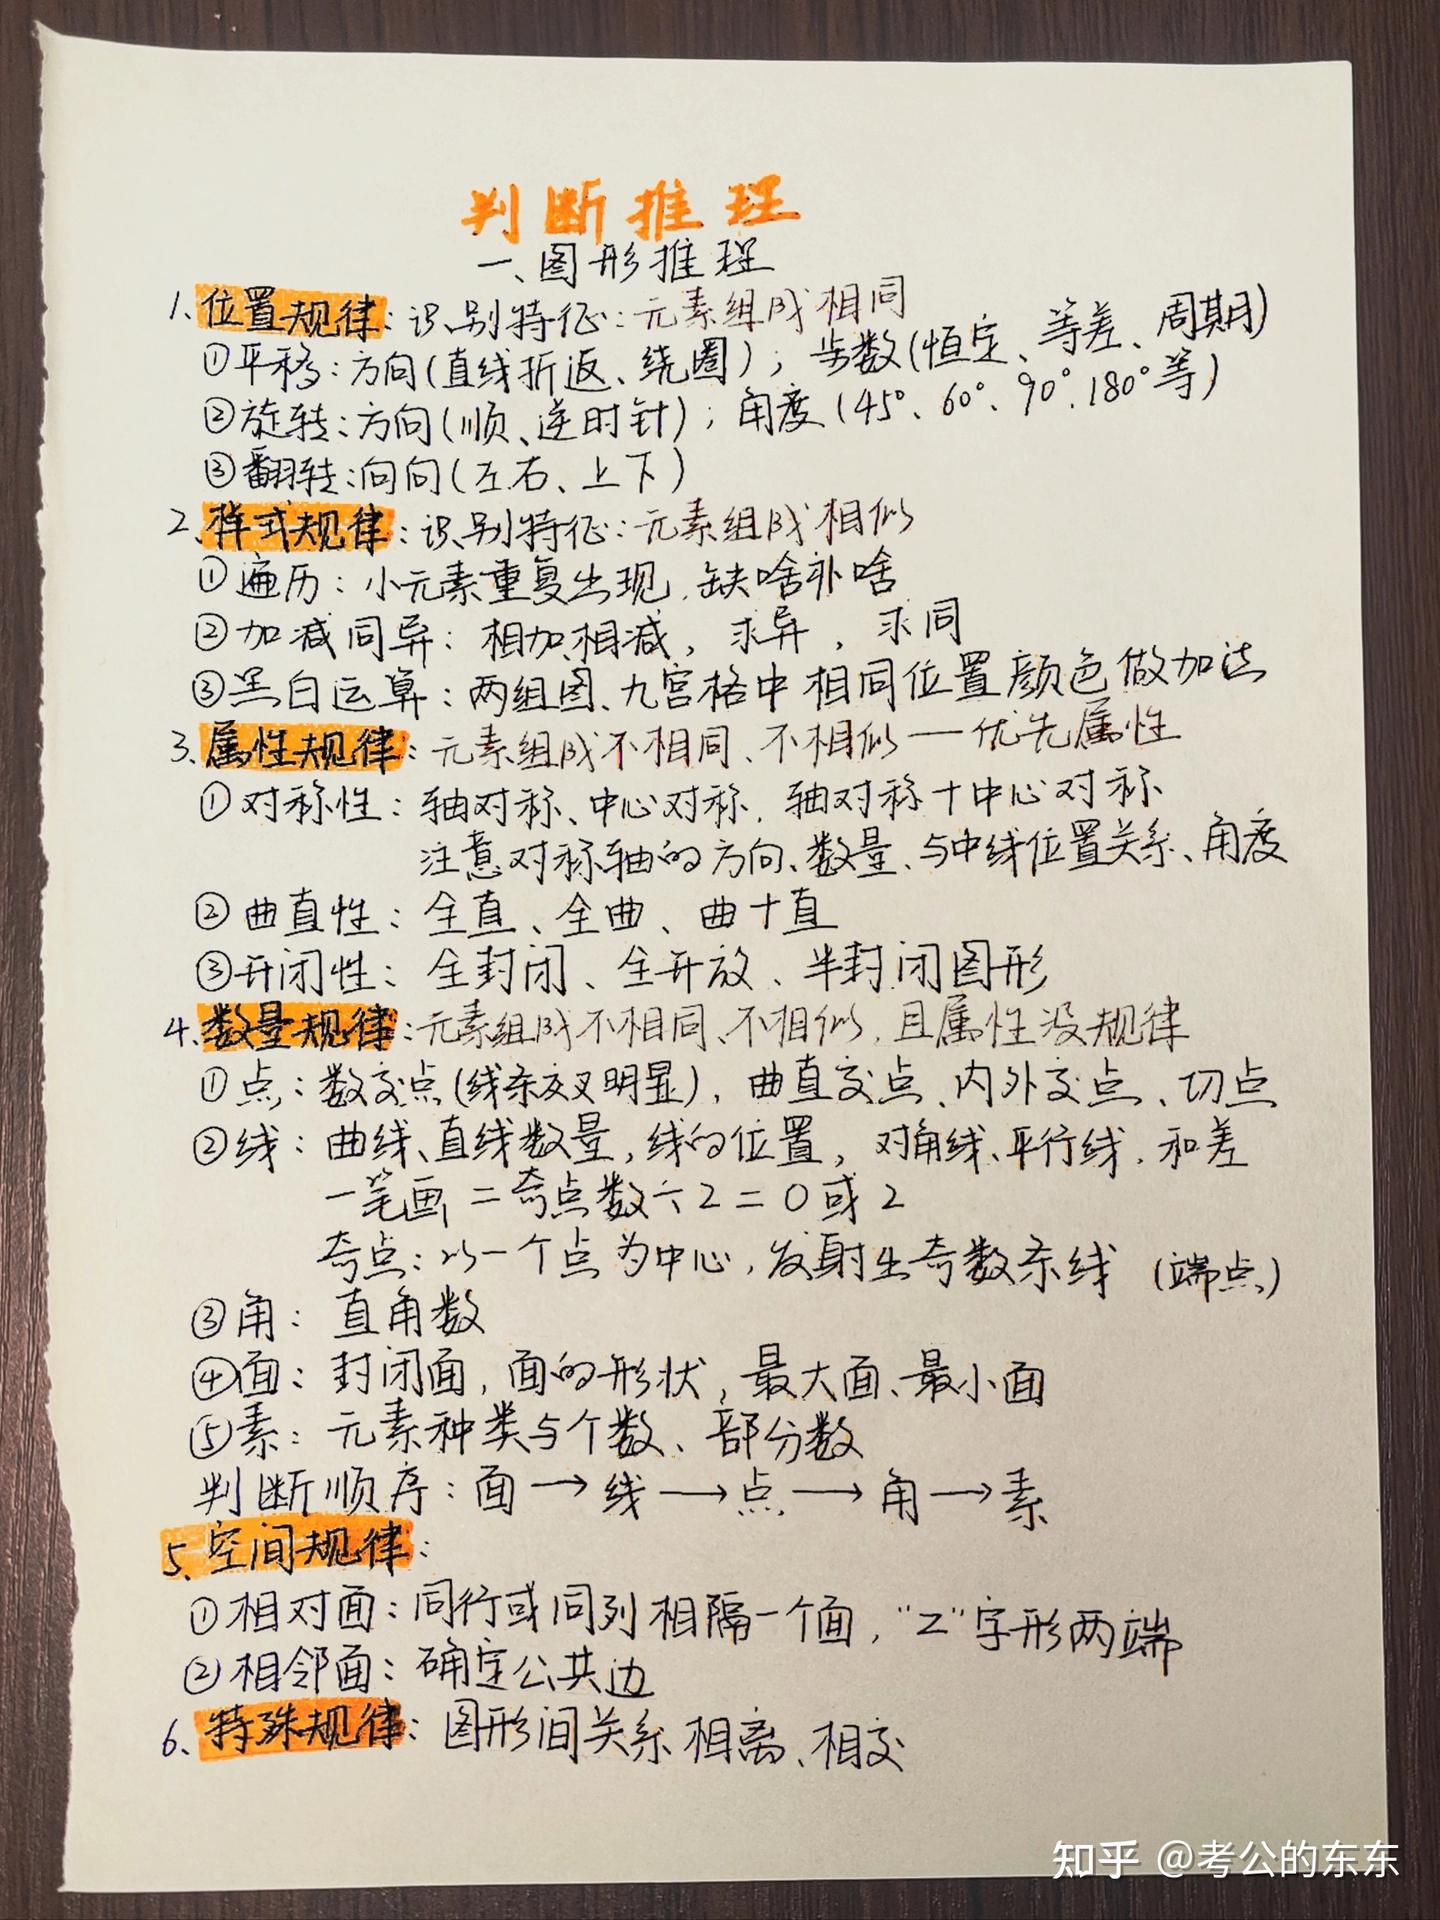 判断推理
一、图形推理
1、位置规律：识别特征：元素组成相同
①平移：方向(直线折返、绕圈)；步数(恒定、等差、周期)
②旋转：方向(顺、逆时针)；角度(45°、60°、90°、180°等)
③翻转：向向(左右、上下)
2、样式规律：识别特征：元素组成相似
①遍历：小元素重复出现，缺啥补啥
②加减同异：相加、相减，求异，求同
③黑白运算：两组图、九宫格中相同位置颜色做加法
3、属性规律：元素组成不相同、不相似—优先属性
①对称性：轴对称、中心对称、轴对称+中心对称
注意对称轴的方向、数量、与中线位置关系、角度
②曲直性：全直、全曲、曲+直
③开闭性：全封闭、全开放、半封闭图形
4、数量规律：元素组成不相同、不相似，且属性没规律
①点：数交点(线条交叉明显)，曲直交点、内外交点、切点
②线：曲线、直线数量，线的位置，对角线、平行线，和差
一笔画=奇点数÷2=0或2
奇点：以一个点为中心，发射出奇数条线（端点）
③角：直角数
④面：封闭面，面的形状，最大面、最小面
⑤素：元素种类与个数、部分数
判断顺序：面→线→点→角→素
5、空间规律：
①相对面：同行或同列相隔一个面，“Z”字形两端
②相邻面：确定公共边
6、特殊规律：图形间关系 相离、相交
知乎 @考公的东东